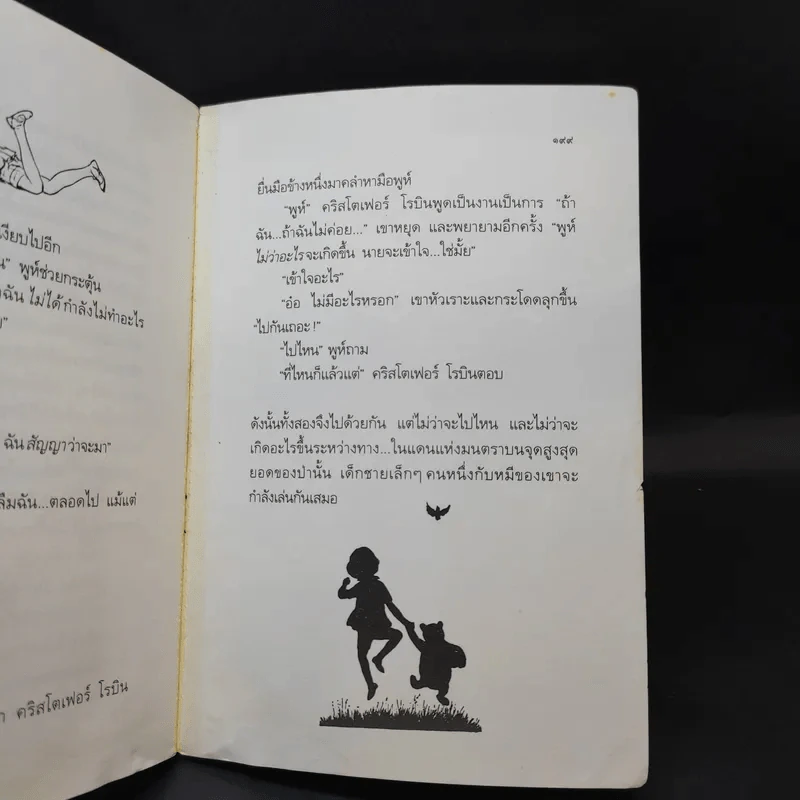 เงียบไปอีก
พูห์ช่วยกระตุ้น
ฉัน ไม่ได้ กำลังไม่ทำอะไร
ฉัน สัญญาว่าจะมา"
ลืมฉัน...ตลอดไป แม้แต่
คริสโตเฟอร์ โรบิน
๑๙๙
ยื่นมือข้างหนึ่งมาคลำหามือพูห์
"พูห์" คริสโตเฟอร์ โรบินพูดเป็นงานเป็นการ "ถ้า
ฉัน...ถ้าฉันไม่ค่อย..." เขาหยุด และพยายามอีกครั้ง "พูห์
ไม่ว่าอะไรจะเกิดขึ้น นายจะเข้าใจ...ใช่มั้ย"
"เข้าใจอะไร"
"อ๋อ ไม่มีอะไรหรอก" เขาหัวเราะและกระโดดลุกขึ้น
"ไปกันเถอะ!"
"ไปไหน" พูห์ถาม
"ที่ไหนก็แล้วแต่" คริสโตเฟอร์ โรบินตอบ
ดังนั้นทั้งสองจึงไปด้วยกัน แต่ไม่ว่าจะไปไหน และไม่ว่าจะ
เกิดอะไรขึ้นระหว่างทาง...ในแดนแห่งมนตราบนจุดสูงสุด
ยอดของป่านั้น เด็กชายเล็กๆ คนหนึ่งกับหมีของเขาจะ
กำลังเล่นกันเสมอ